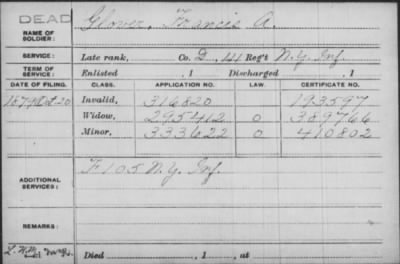 DEAD
NAME OF SOLDIER: Glover, Francis A.
SERVICE: Late rank, Co. D, 44 Reg't N.Y. Inf
TERM OF SERVICE: Enlisted , 1 Discharged , 1
DATE OF FILING. CLASS. APPLICATION NO. LAW. CERTIFICATE NO.
1879 Oct 20 Invalid, 316820 193597
Widow, 295412 0 389766
Minor, 333622 0 410802
ADDITIONAL SERVICES: F 105 N.Y. Inf.
REMARKS:
Died , 1 , at